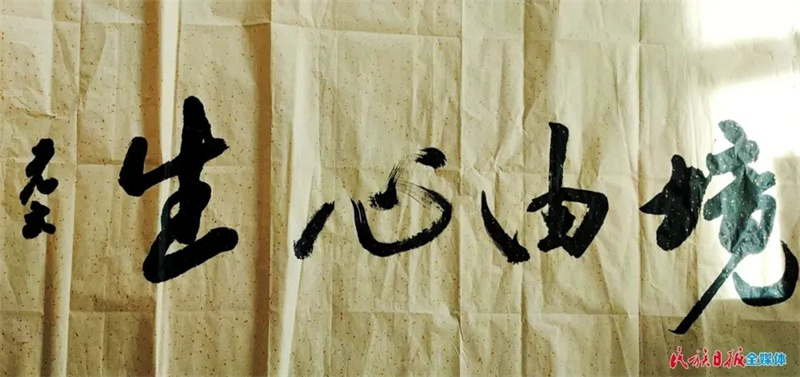 境由心生
民族日报全媒体